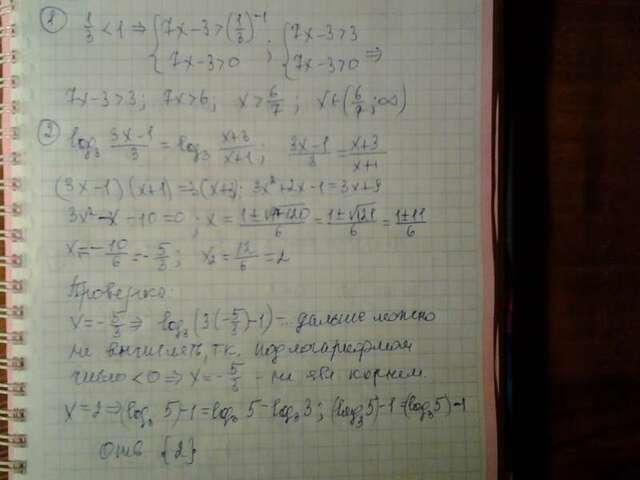 ① 1/3 < 1 ⇒ { 7x-3 > (1/3)^-1 ; { 7x-3 > 3
7x-3 > 0 7x-3 > 0 ⇒
7x-3 > 3; 7x > 6; x > 6/7; x ∈ (6/7; ∞)
② log₃ (3x-1)/3 = log₃ (x+3)/(x+1); (3x-1)/3 = (x+3)/(x+1)
(3x-1)(x+1) = 3(x+3); 3x²+2x-1 = 3x+9
3x²-x-10=0; x = (1±√(1+120))/6 = (1±√121)/6 = (1±11)/6
x₁ = -10/6 = -5/3; x₂ = 12/6 = 2
Проверка:
x = -5/3 ⇒ log₃ (3(-5/3)-1) = дальше можно
не вычислять, т.к. под логарифмом
число < 0 ⇒ x = -5/3 - не явл корнем.
x = 2 ⇒ (log₃ 5)-1 = log₃ 5 - log₃ 3; (log₃ 5)-1 = (log₃ 5)-1
Отв {2}